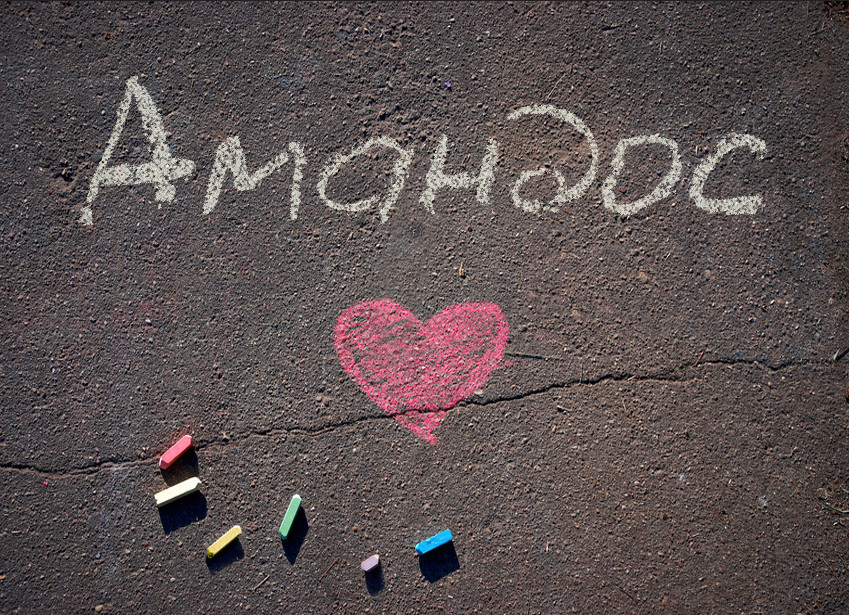 Амандос